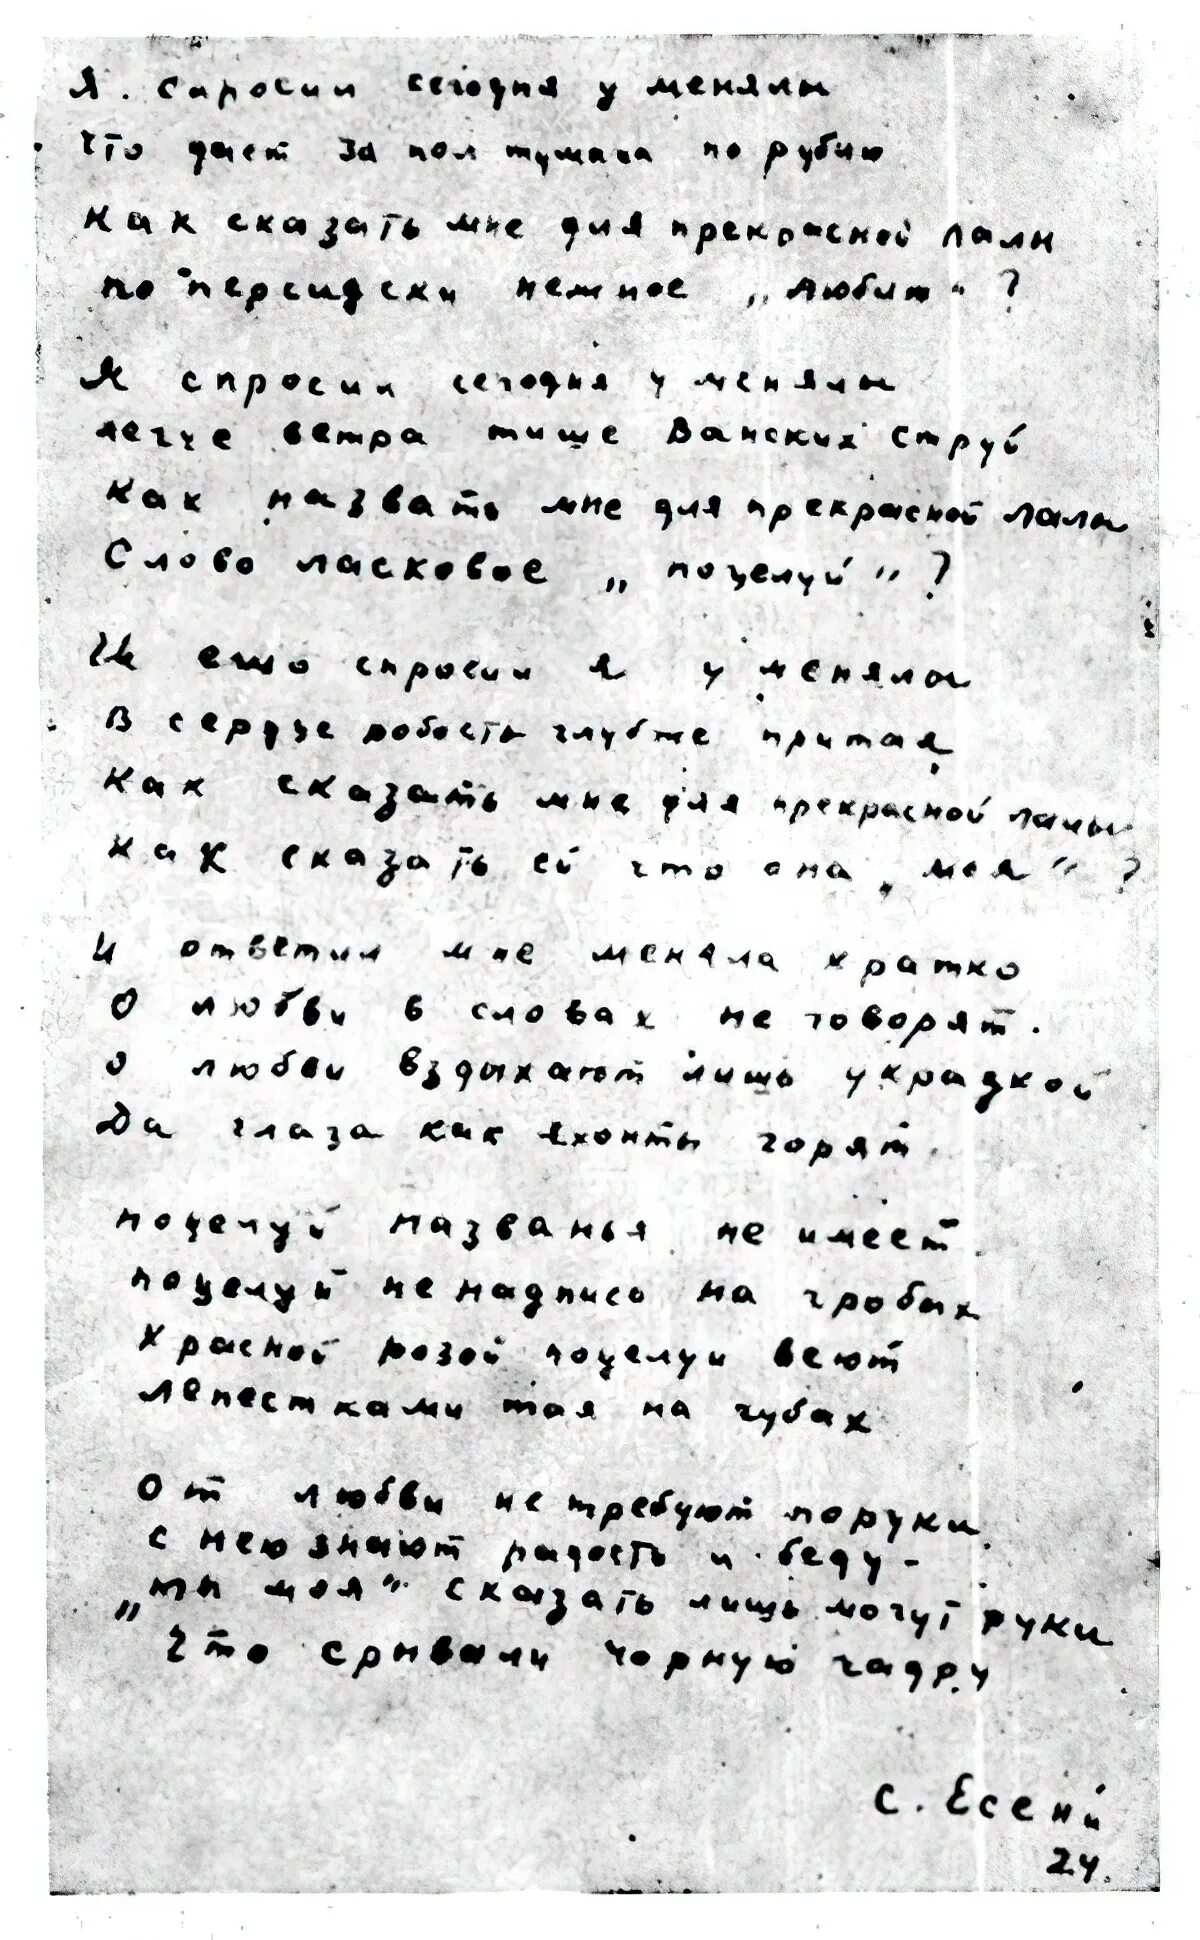 Я спросил сегодня у менялы
Что дает за пол тумана по рублю
Как сказать мне для прекрасной Лалы
по персидски нежное „люблю“?
Я спросил сегодня у менялы
легче ветра тише Ванских струй
Как назвать мне для прекрасной Лалы
Слово ласковое „поцелуй“?
И ещо спросил я у менялы
В сердце робость глубже притая,
Как сказать мне для прекрасной Лалы
Как сказать ей что она „моя“?
И ответил мне меняла кратко
О любви в словах не говорят.
О любви вздыхают лишь украдкой
Да глаза как яхонты горят.
поцелуй названья не имеет.
поцелуй не надпись на гробах
Красной розой поцелуи веют
Лепестками тая на губах
От любви не требуют поруки
с нею знают радость и беду -
„ты моя“ сказать лишь могут руки
Что срывали чорную чадру
С. Есенин
24.